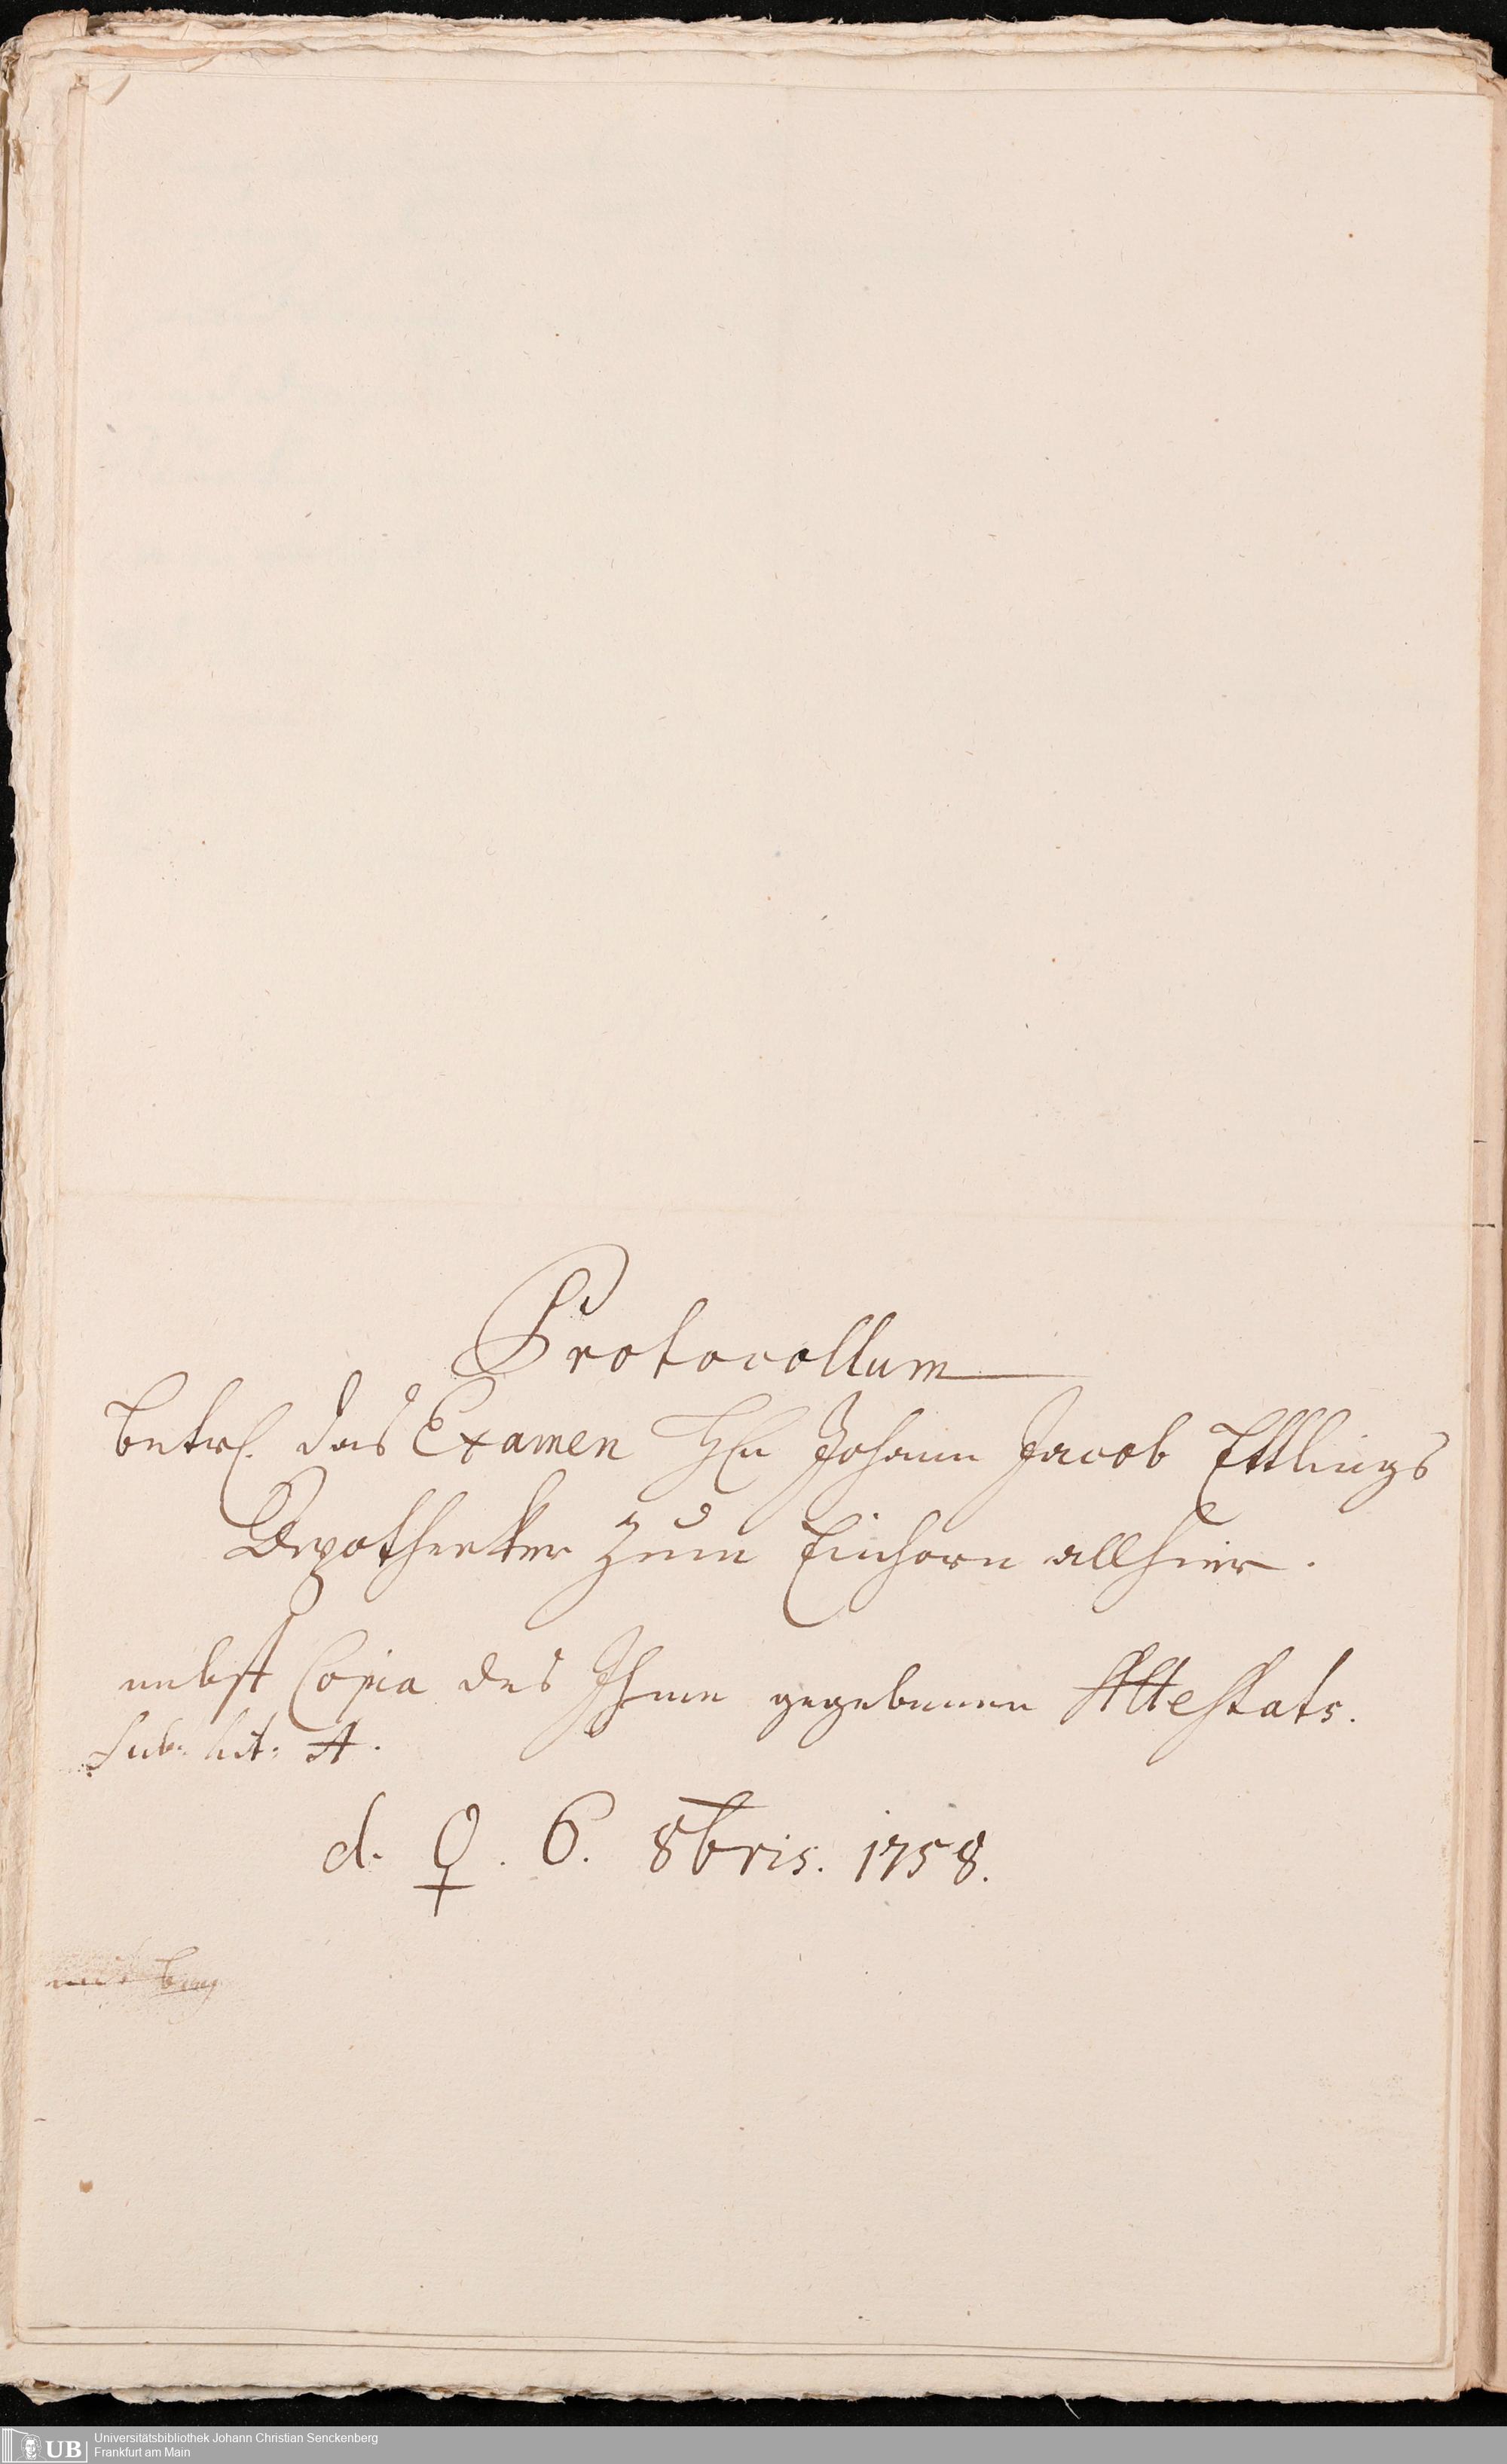 Protocollum
betrf. das Examen Hln Johann Jacob Ettlings
Apothecker zum Einhorn allhier.
nebst Copia des Ihme gegebenen Attestats.
sub. Lit: A.
d. ♀. 6. 8bris. 1758.
UB
Universitätsbibliothek Johann Christian Senckenberg
Frankfurt am Main